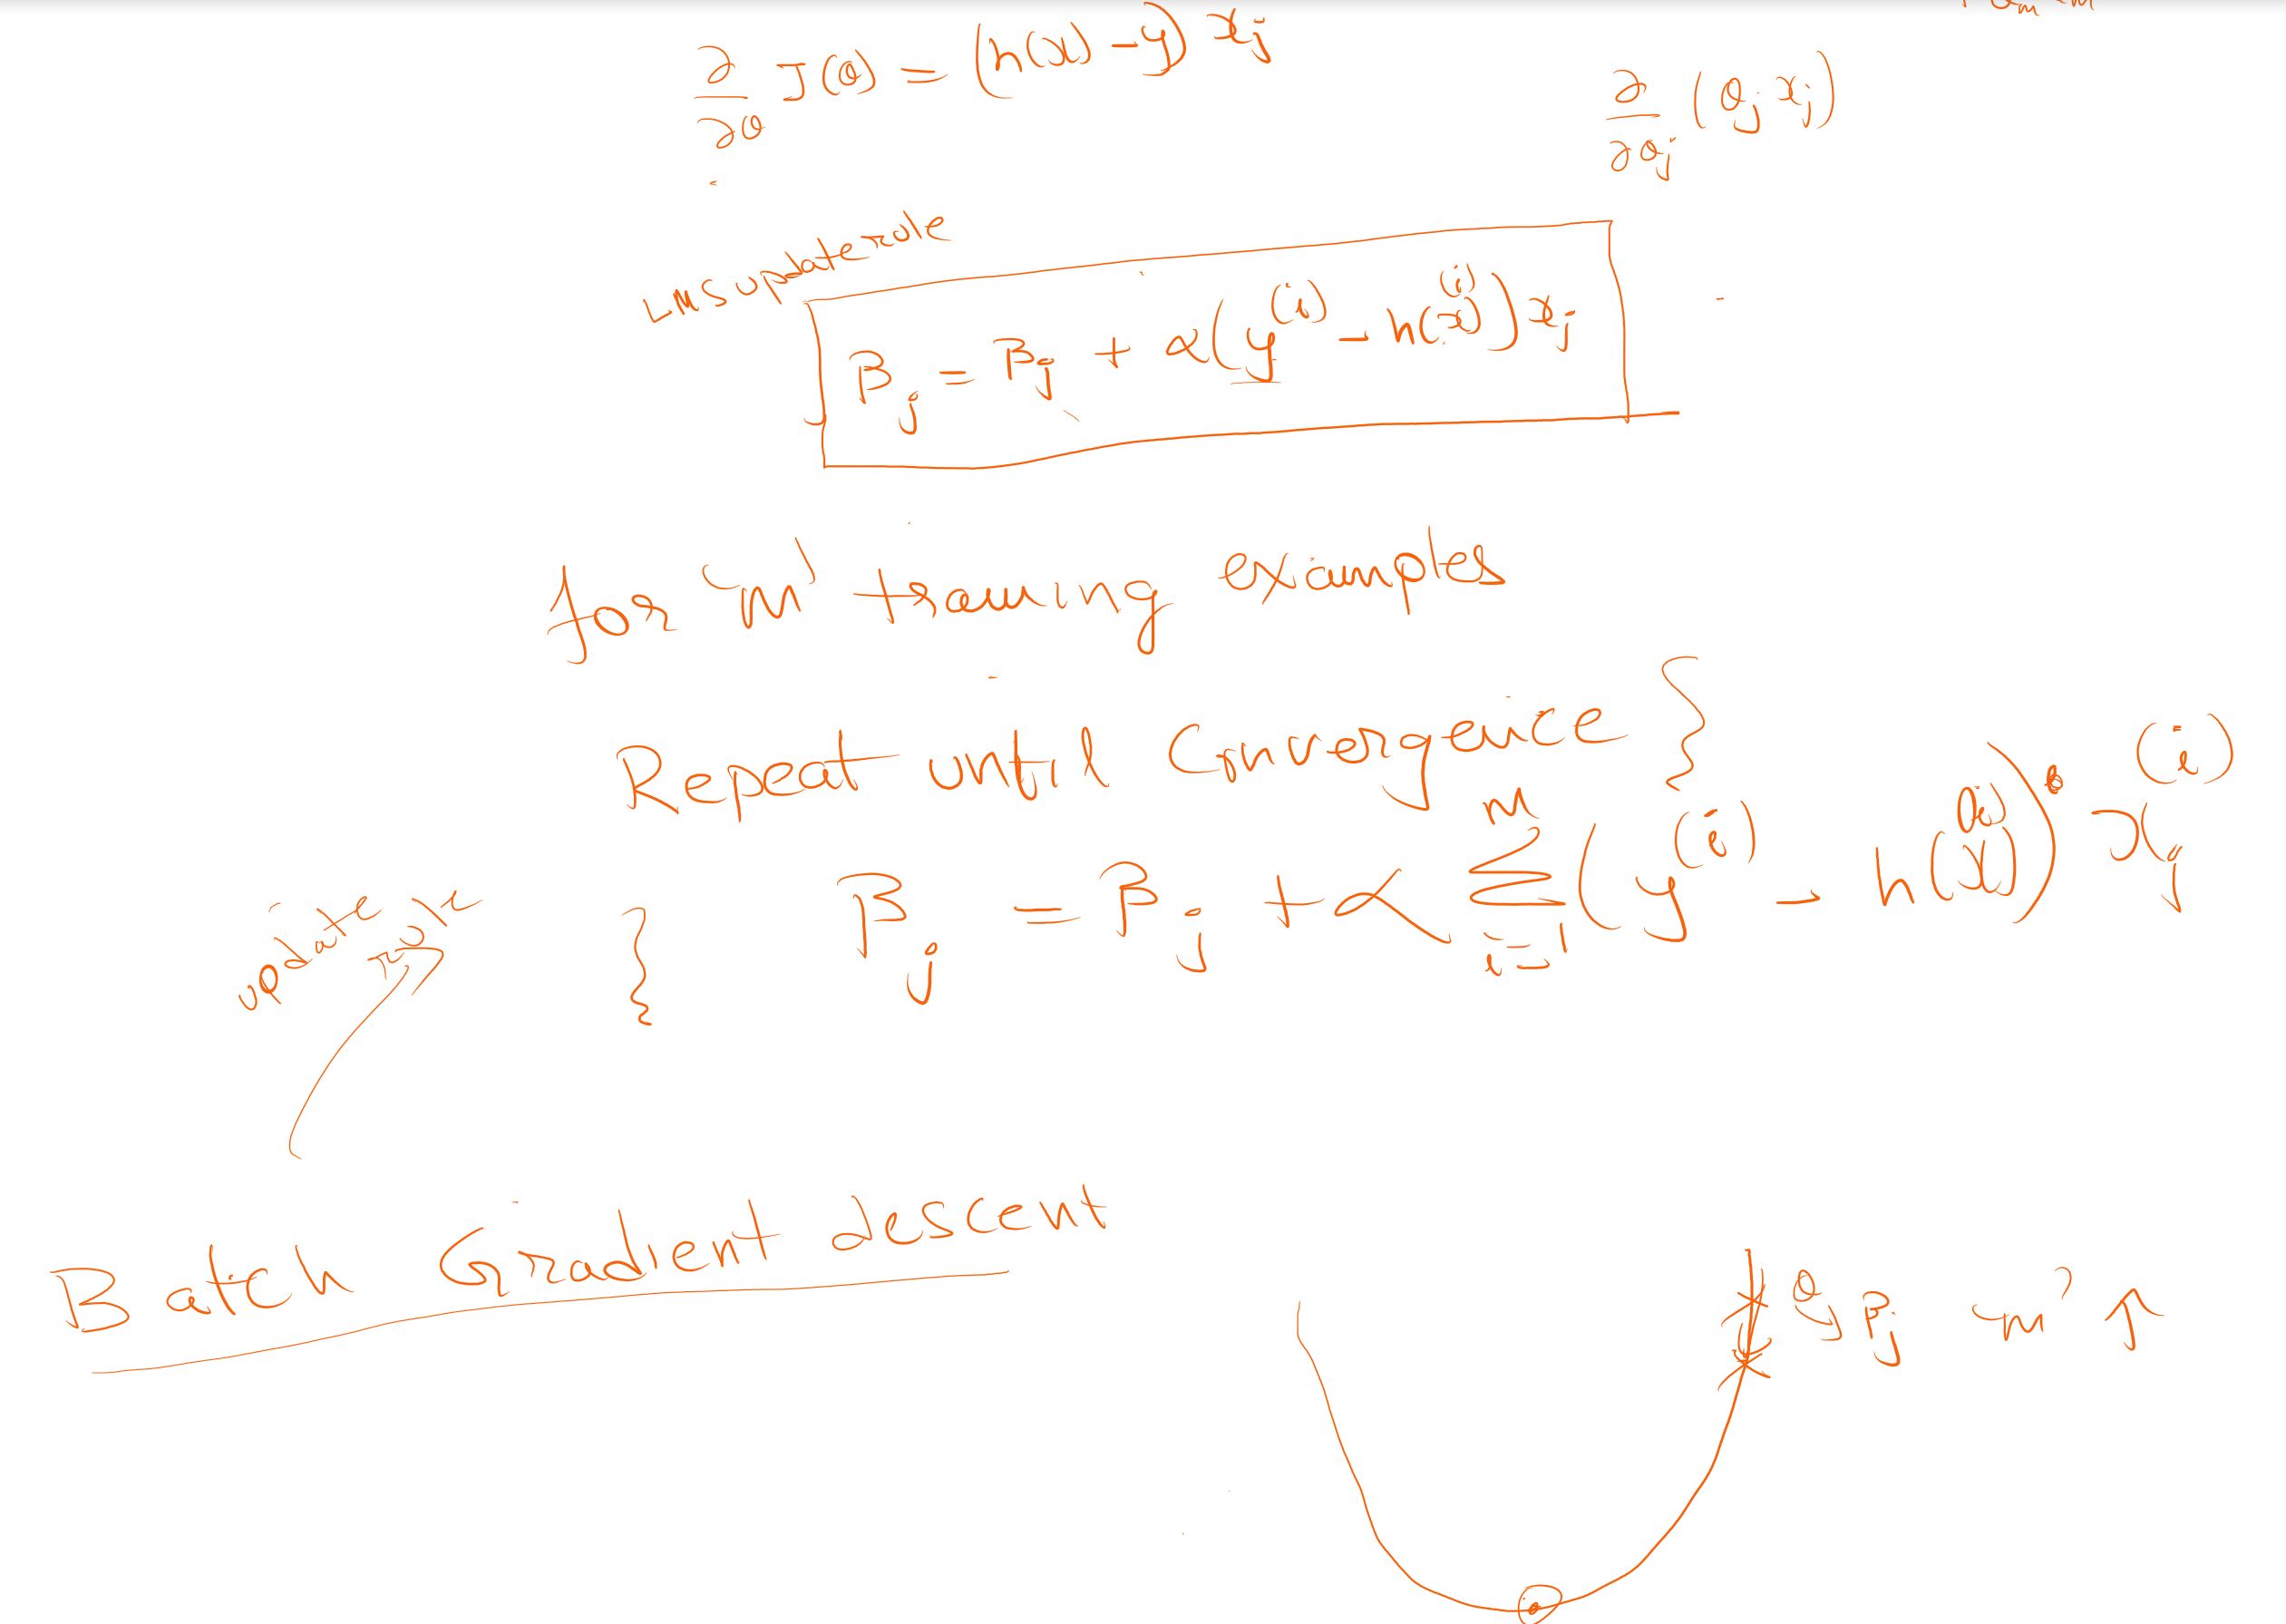 ∂/∂θ J(θ) = (h(x) - y) xj
∂/∂θj (θj xj)
LMS update rule
Bj = Bj + α(y(i) - h(x(i))) xj
for 'm' training examples
Repeat until Convergence {
Bj = Bj + α Σ i=1 m (y(i) - h(x(i))) · xj(i)
}
update rule
Batch Gradient descent
θj Bj 'm' ↑